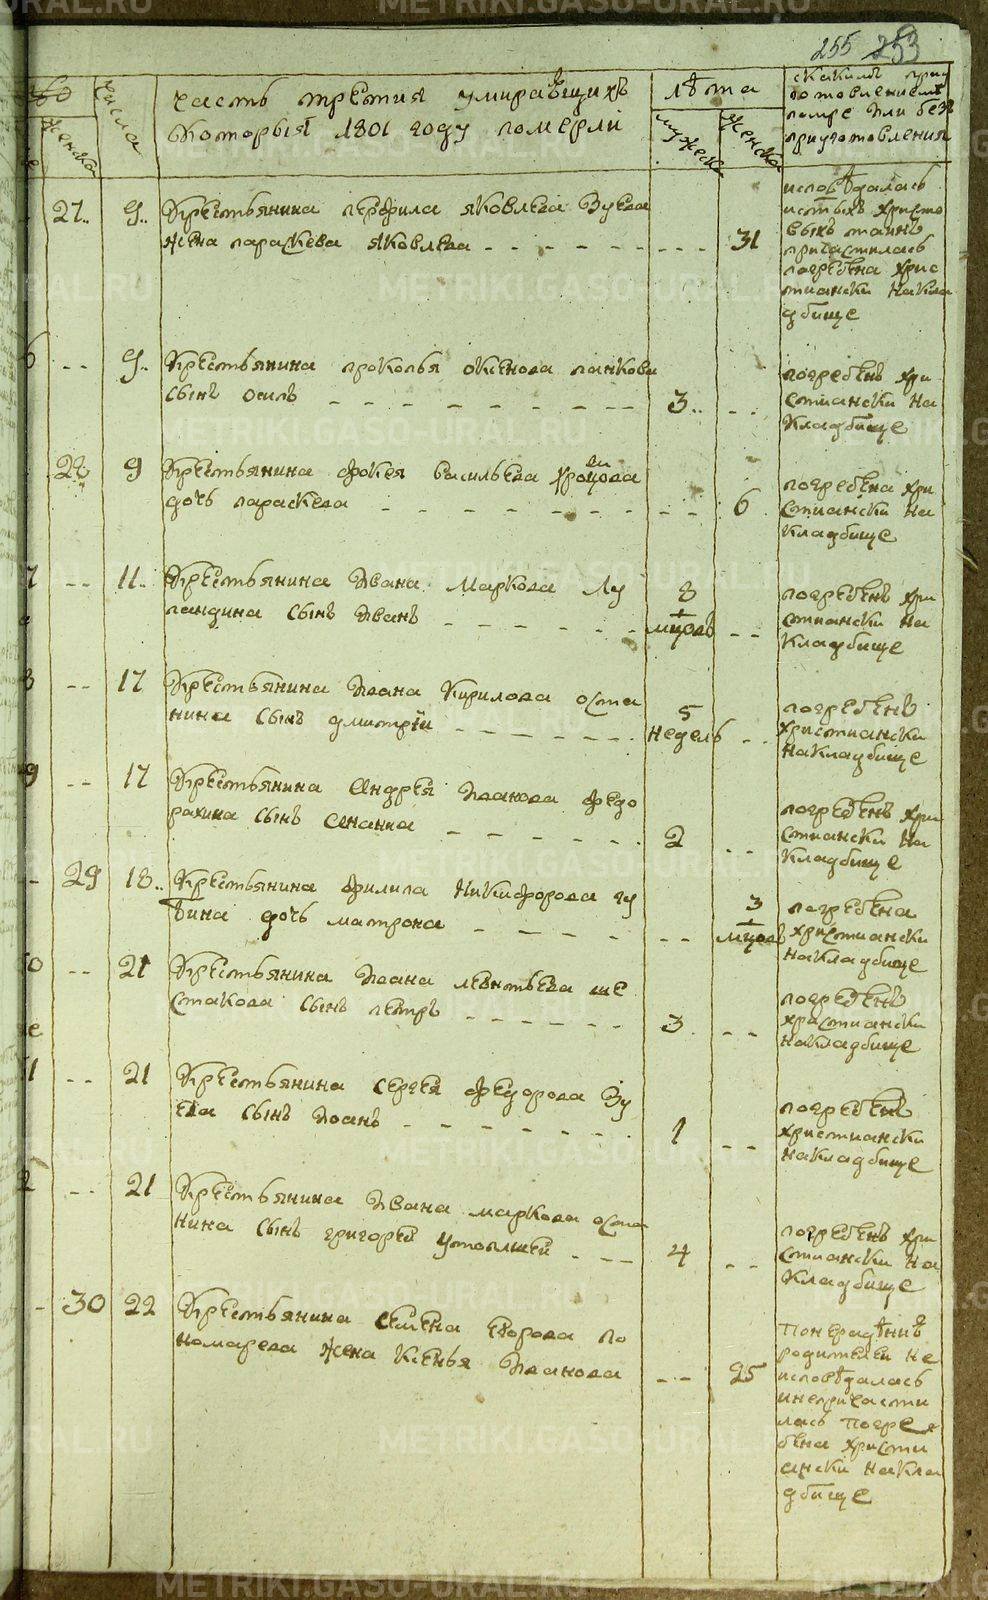 255 253
Числа
женска
часть третия умирающихъ
которыя 1801 году померли
лѣта
мужеска
женска
скакимъ при
готовлениемъ
помре или без
приуготовления
27.. 9.. Крестьянина перфила яковлева Зуева
жена параскева яковлева 31
исповѣдалась
истыхъ христо
выхъ таинъ
причастилась
погребена хрис
тиански накла
дбище
6 9.. Крестьянина прокопья оксенова панкова
сынъ осипъ 3..
погребенъ хри
стиански на
кладбище
28 9 Крестьянина фокея васильева
дочь параскева 6
погребена хри
стиански на
кладбище
7 11.. Крестьянина Ивана Маркова Лу
пандина сынъ Иванъ 8 мцовъ
погребенъ хри
стиански на
кладбище
8 17 Крестьянина Ивана Кирилова оста
нина сынъ дмитрїи 5 недель
погребенъ
христиански
накладбище
9 17 Крестьянина Андрея Иванова федо
рахина сынъ Анания 2
погребенъ хри
стиански на
кладбище
29 18.. Крестьянина филипа Никифорова гу
бина дочь матрона 3 мцовъ
погребена
христиански
накладбище
0 21 Крестьянина Ивана леонтьева ше
стакова сынъ петръ 3
погребенъ
христиански
накладбище
1 21 Крестьянина сергея федорова Зу
ева сынъ Иоанъ 1
погребенъ
христиански
накладбище
2 21 Крестьянина Ивана маркова оста
нина сынъ григорей утопшей 4
погребенъ хри
стиански на
кладбище
30 22 Крестьянина семена егорова по
номарева жена Ксенья Иванова 25
Понерадѣнию
родителей не
исповѣдалась
инепричасти
лась погре
бена христи
ански накла
дбище
METRIKI.GASO-URAL.RU